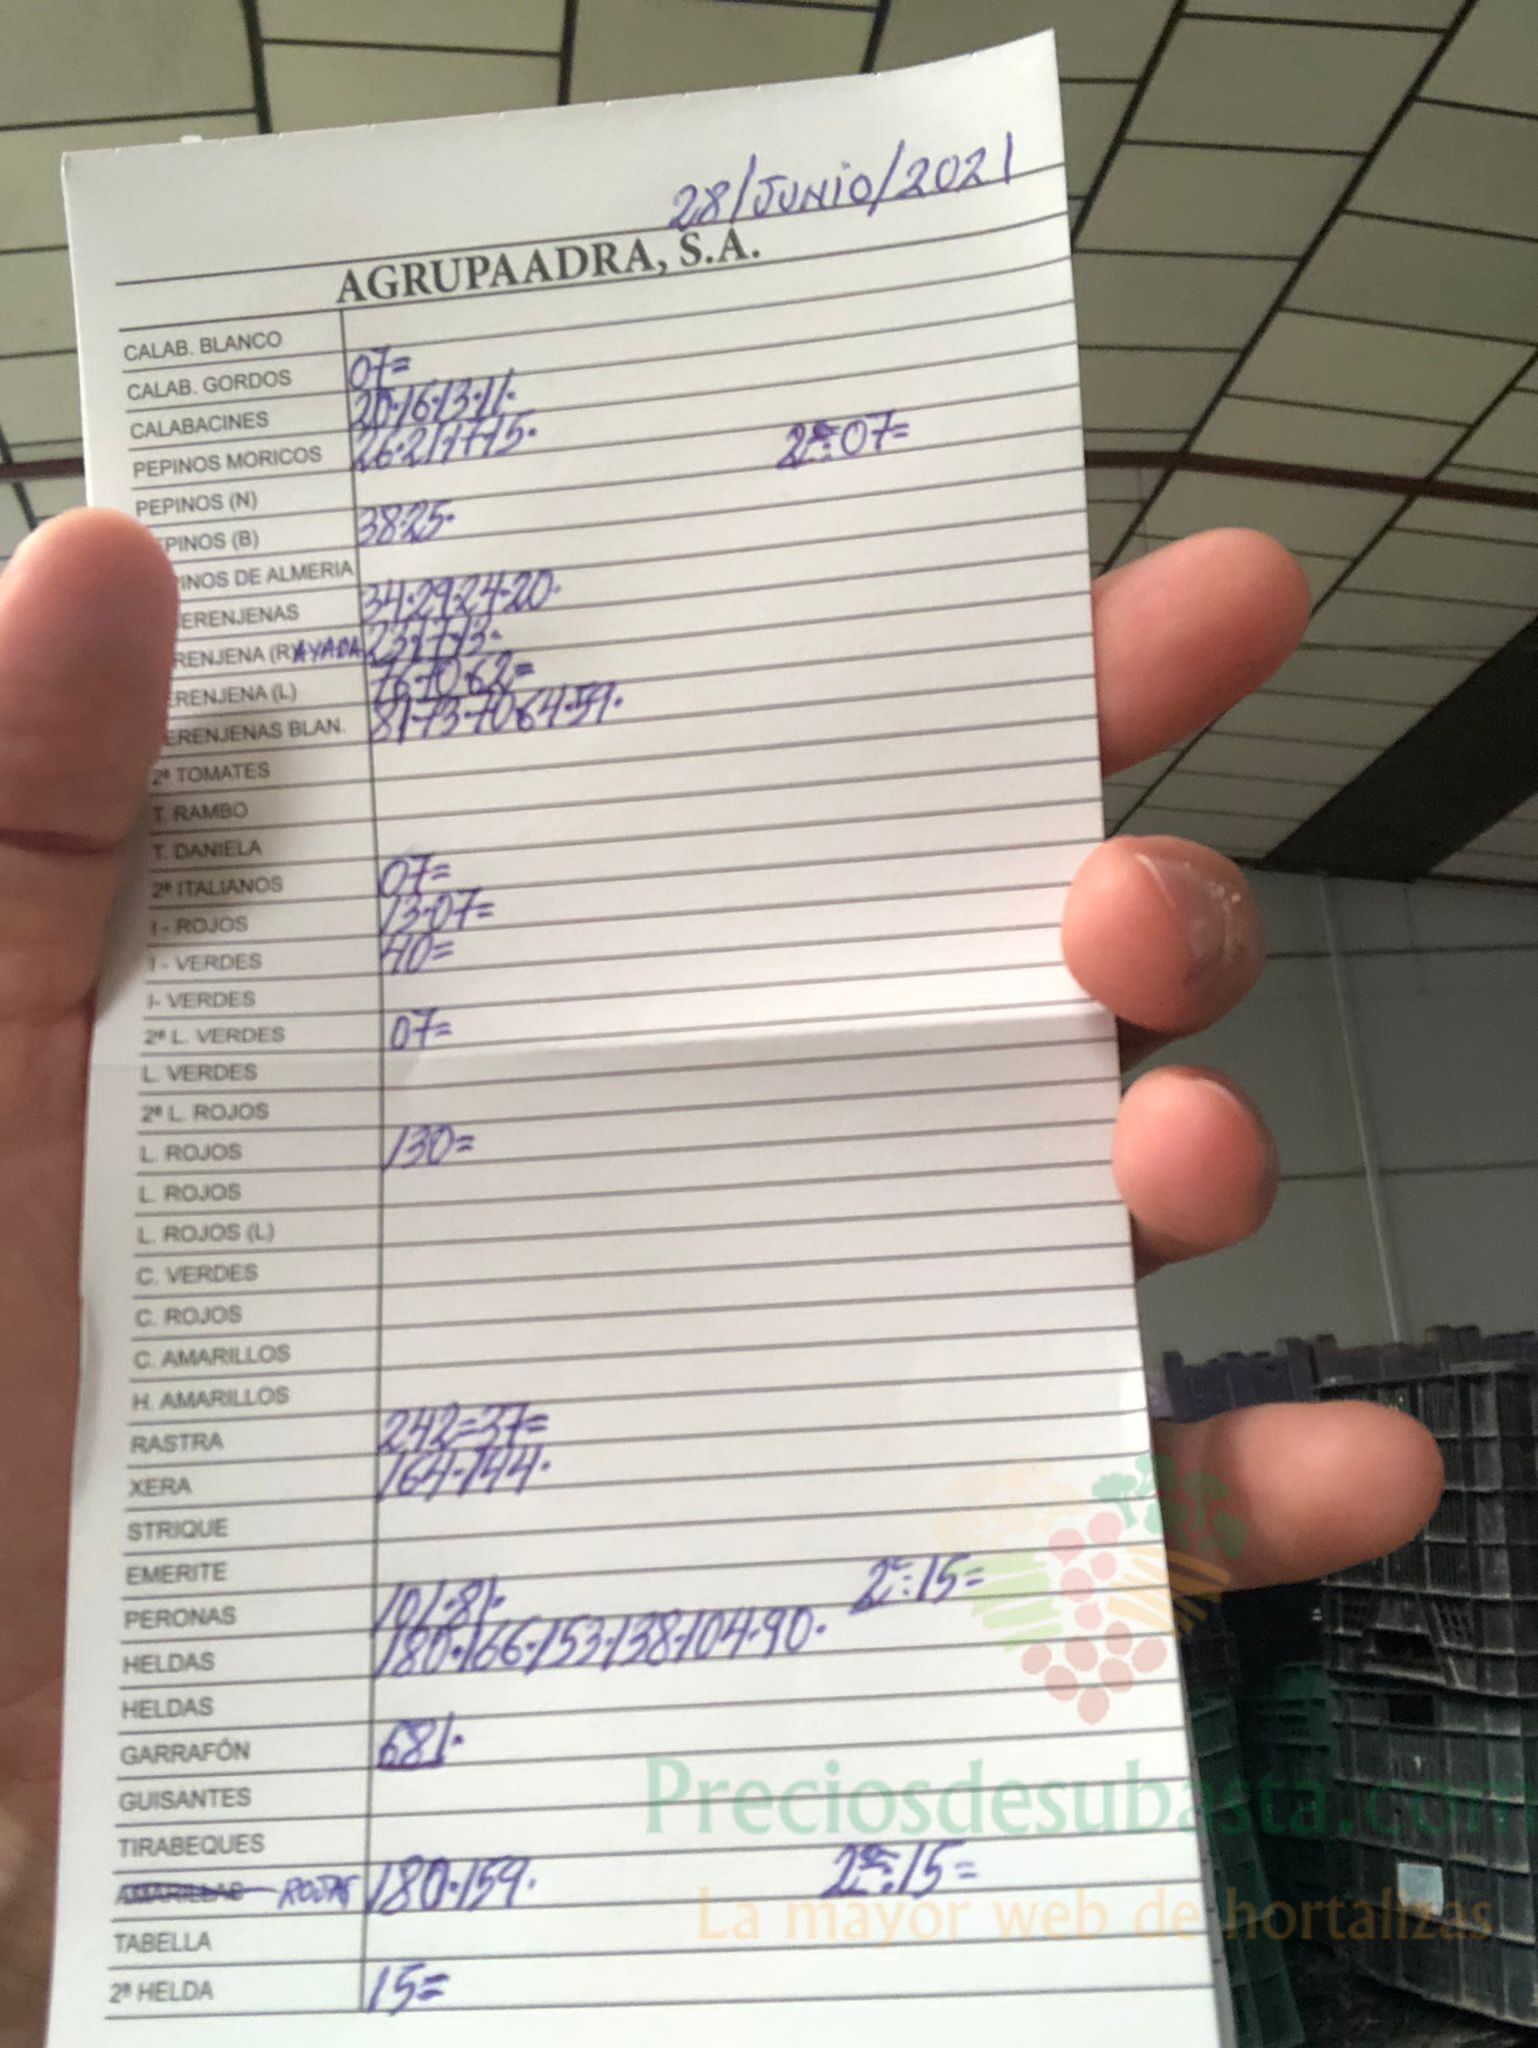 28/JUNIO/2021
AGRUPAADRA, S.A.
CALAB. BLANCO
CALAB. GORDOS 07=
CALABACINES 20·16·13·11·
PEPINOS MORICOS 26·21·17·15· 2ªs:07=
PEPINOS (N)
PINOS (B) 38·25·
INOS DE ALMERIA
ERENJENAS 34·29·24·20·
RENJENA (R)AYADA 23·17·13·
ERENJENA (L) 76·70·62=
ERENJENAS BLAN. 81·73·70·64·59·
2ª TOMATES
T. RAMBO
T. DANIELA
2ª ITALIANOS 07=
I - ROJOS 13·07=
I - VERDES 40=
I- VERDES
2ª L. VERDES 07=
L. VERDES
2ª L. ROJOS
L. ROJOS 130=
L. ROJOS
L. ROJOS (L)
C. VERDES
C. ROJOS
C. AMARILLOS
H. AMARILLOS
RASTRA 242=37=
XERA 164·144·
STRIQUE
EMERITE
PERONAS 101·81· 2ª:15=
HELDAS 180·166·153·138·104·90·
HELDAS
GARRAFÓN 681·
GUISANTES
TIRABEQUES
AMARILLAS ROJAS 180·159· 2ªs:15=
TABELLA
2ª HELDA 15=
Preciosdesubasta.com
La mayor web de hortalizas